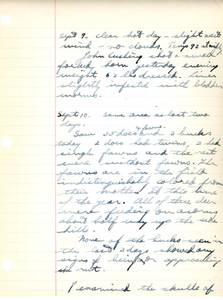 Sept 9. Clear hot day - slight west
wind - no clouds. Temp 92
John Cushing shot a small
forked horn yesterday evening
weight 63 lbs dressed. Liver
slightly infested with bladder
worms.
Sept 10. Same area as last two
days.
Saw 25 does & 2 bucks
today 2 does had twins, 3 had
single fawns and the rest
were without fawns. The
fawns are in the field
indistinguishable from
their mothers at this time
of the year. All of these deer
were feeding on acorns
about half way up the
hills.
None of the bucks seen in
the last days show any
signs of being or approaching
the rut.
I examined the skulls of